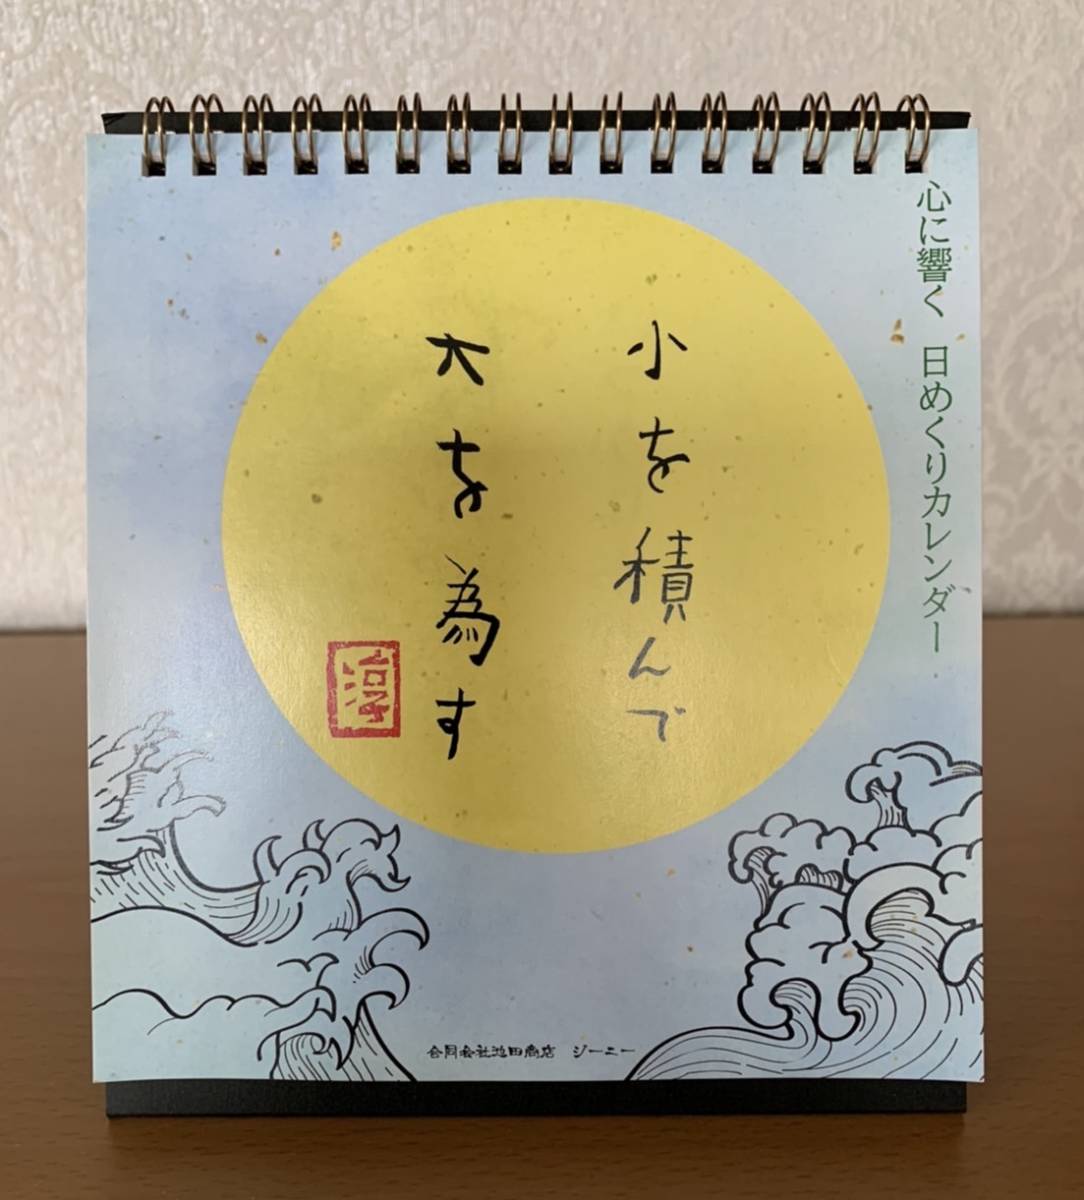 心に響く 日めくりカレンダー
小を積んで
大を為す
淳
合同会社池田商店 ジーニー